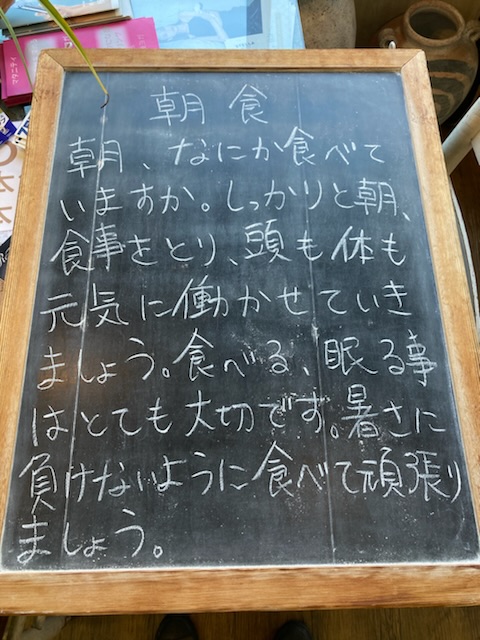 朝食
朝、なにか食べて
いますか。しっかりと朝、
食事をとり、頭も体も
元気に働かせていき
ましょう。食べる、眠る事
はとても大切です。暑さに
負けないように食べて頑張り
ましょう。